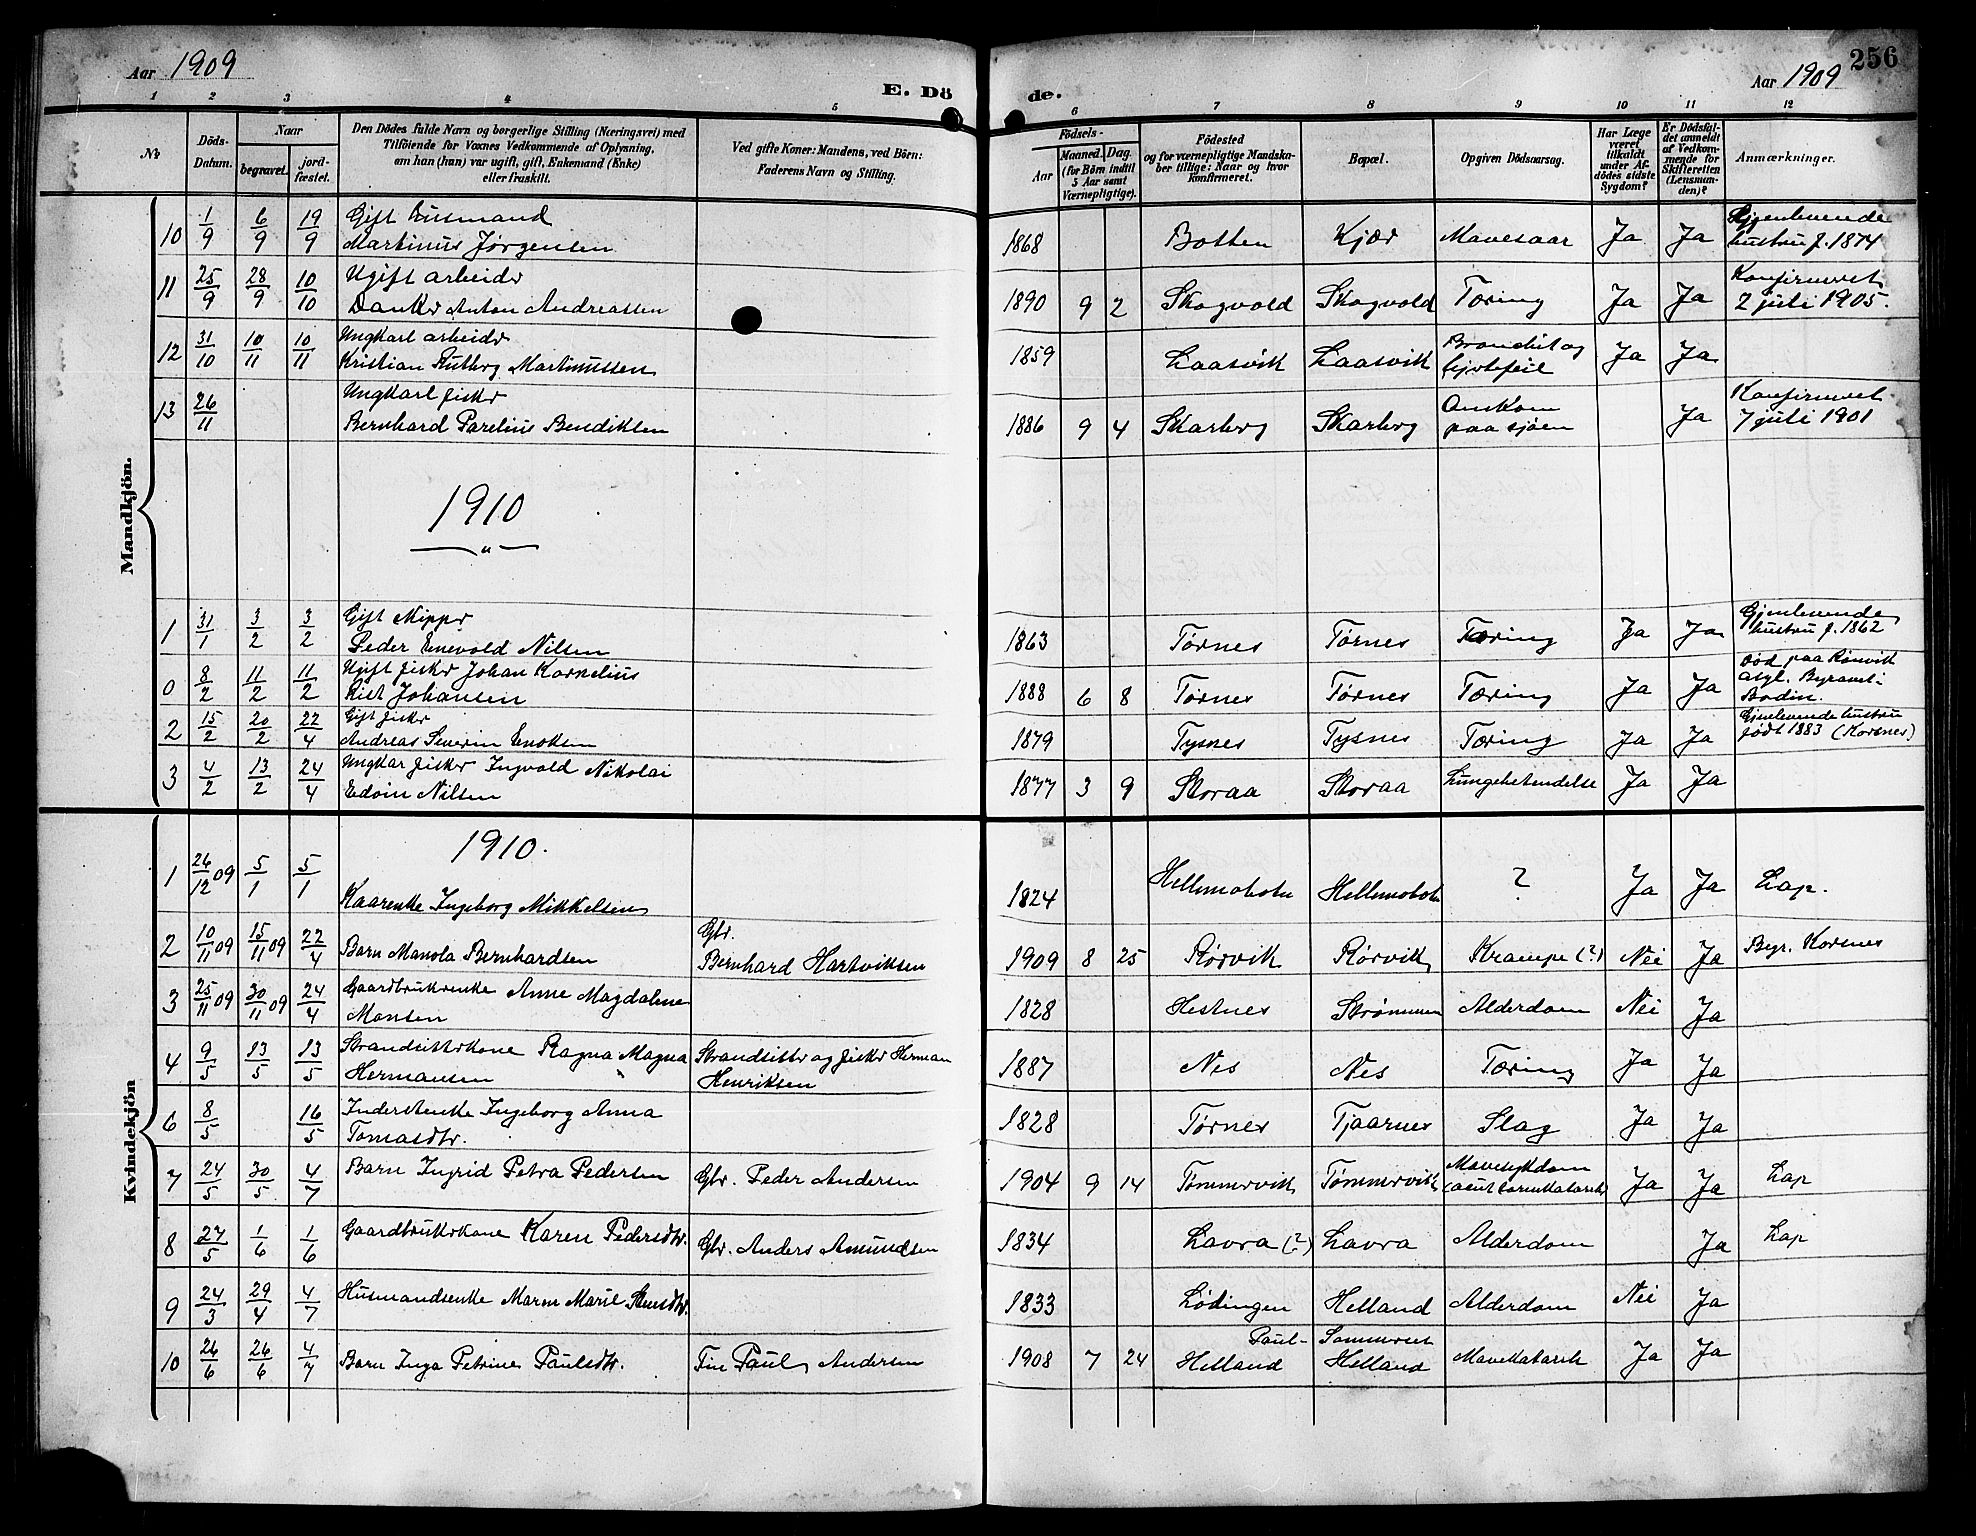 Aar 1909
E. Dö
de.
Aar 1909
256
1 2 3 4 5 6 7 8 9 10 11 12
No
Döds-Datum.
Naar
begravet.
jord-fæstet.
Den Dödes fulde Navn og borgerlige Stilling (Næringsvei) med
Tilföiende for Voxnes Vedkommende af Oplysning,
om han (hun) var ugift, gift, Enkemand (Enke)
eller fraskilt.
Ved gifte Koner: Mandens, ved Börn:
Faderens Navn og Stilling.
Födsels-
Aar
Maaned. Dag.
(for Børn indtil
5 Aar samt
Værnepligtige).
Födested
og for værnepligtige Mandska-
ber tillige: Naar og hvor
konfirmeret.
Bopæl.
Opgiven Dödsaarsag.
Har Læge
været
tilkaldt
under Af-
dödes sidste
Sygdom?
Er Dödsfal-
det anmeldt
af Vedkom-
mende for
Skifteretten
(Lensman-
den)?
Anmærkninger.
Mandkjön.
10 1/9 6/9 19/9 Gift husmand
Martinus Jørgensen 1868 Botten Kjær Mavesaar Ja Ja Gjenlevende
hustru f. 1874
11 25/9 28/9 10/10 Ugift arbeider
Danker Anton Andreassen 1890 9 2 Skogvold Skogvold Tæring Ja Ja Konfirmeret
2 juli 1905.
12 31/10 10/11 10/11 Ungkarl arbeider
Kristian Martinussen 1859 Laasvik Laasvik Bronchit og
hjertefeil Ja Ja
13 26/11 Ungkarl fisker
Bernhard Parelius Bendiksen 1886 9 4 Skarberg Skarberg Omkom
paa sjøen Ja Konfirmeret
7 juli 1901
1910
1 31/1 3/2 3/2 Gift Skipper
Peder Enevold Nilsen 1863 Tørnes Tørnes Tæring Ja Ja Gjenlevende
hustru f. 1862
0 8/2 11/2 11/2 Ugift fisker Johan Kornelius
Kist Johansen 1888 6 8 Tørnes Tørnes Tæring Ja Ja Død paa Rønvik
asyl. Begravet i
Bodin.
2 15/2 20/2 22/4 Gift fisker
Andreas Severin Enoksen 1879 Tysnes Tysnes Tæring Ja Ja Gjenlevende hustru
født 1883 (Korsnes)
3 4/2 13/2 24/4 Ungkar fisker Ingvald Nikolai
Edvin Nilsen 1877 3 9 Storaa Storaa Lungebetendelse Ja Ja
Kvindekjön
1910.
1 26/12 09 5/1 5/1 Kaarenke Ingeborg Mikkelsen 1824 Hellemobotn Hellemobotn ? Ja Ja Lap.
2 10/11 09 15/11 09 22/4 Barn Manola Bernhardsen Gbr.
Bernhard Hartviksen 1909 8 25 Rørvik Rørvik Krampe (?) Nei Ja Begr. Korsnes
3 25/11 09 30/11 09 24/4 Gaardbrukerenke Anne Magdalene
Monsen 1828 Hestnes Strømmen Alderdom Nei Ja
4 9/5 13/5 13/5 Strandsitterkone Ragna Magna
Hermansen Strandsitter og fisker Herman
Henriksen 1887 Nes Nes Tæring Ja Ja
6 8/5 16/5 Inderstenke Ingeborg Anna
Tomasdtr. 1828 Tørnes Tjaarnes Slag Ja Ja
7 24/5 30/5 4/7 Barn Ingrid Petra Pedersen Gbr. Peder Andersen 1904 9 14 Tømmervik Tømmervik Mavesykdom
(acut tarmkatarrh) Ja Ja Lap
8 27/5 1/6 1/6 Gaardbrukerkone Karen Pedersdtr. Gbr. Anders Amundsen 1834 Lavra (?) Lavra Alderdom Ja Lap
9 24/3 29/4 4/7 Husmandsenke Maren Marie 1833 Lødingen Helland Alderdom Nei Ja
10 26/6 26/6 4/7 Barn Inga Petrine Paulsdtr. Paul Andersen 1908 7 24 Paul-
Helland Sommerset
Helland Mavekatarrh Ja Ja